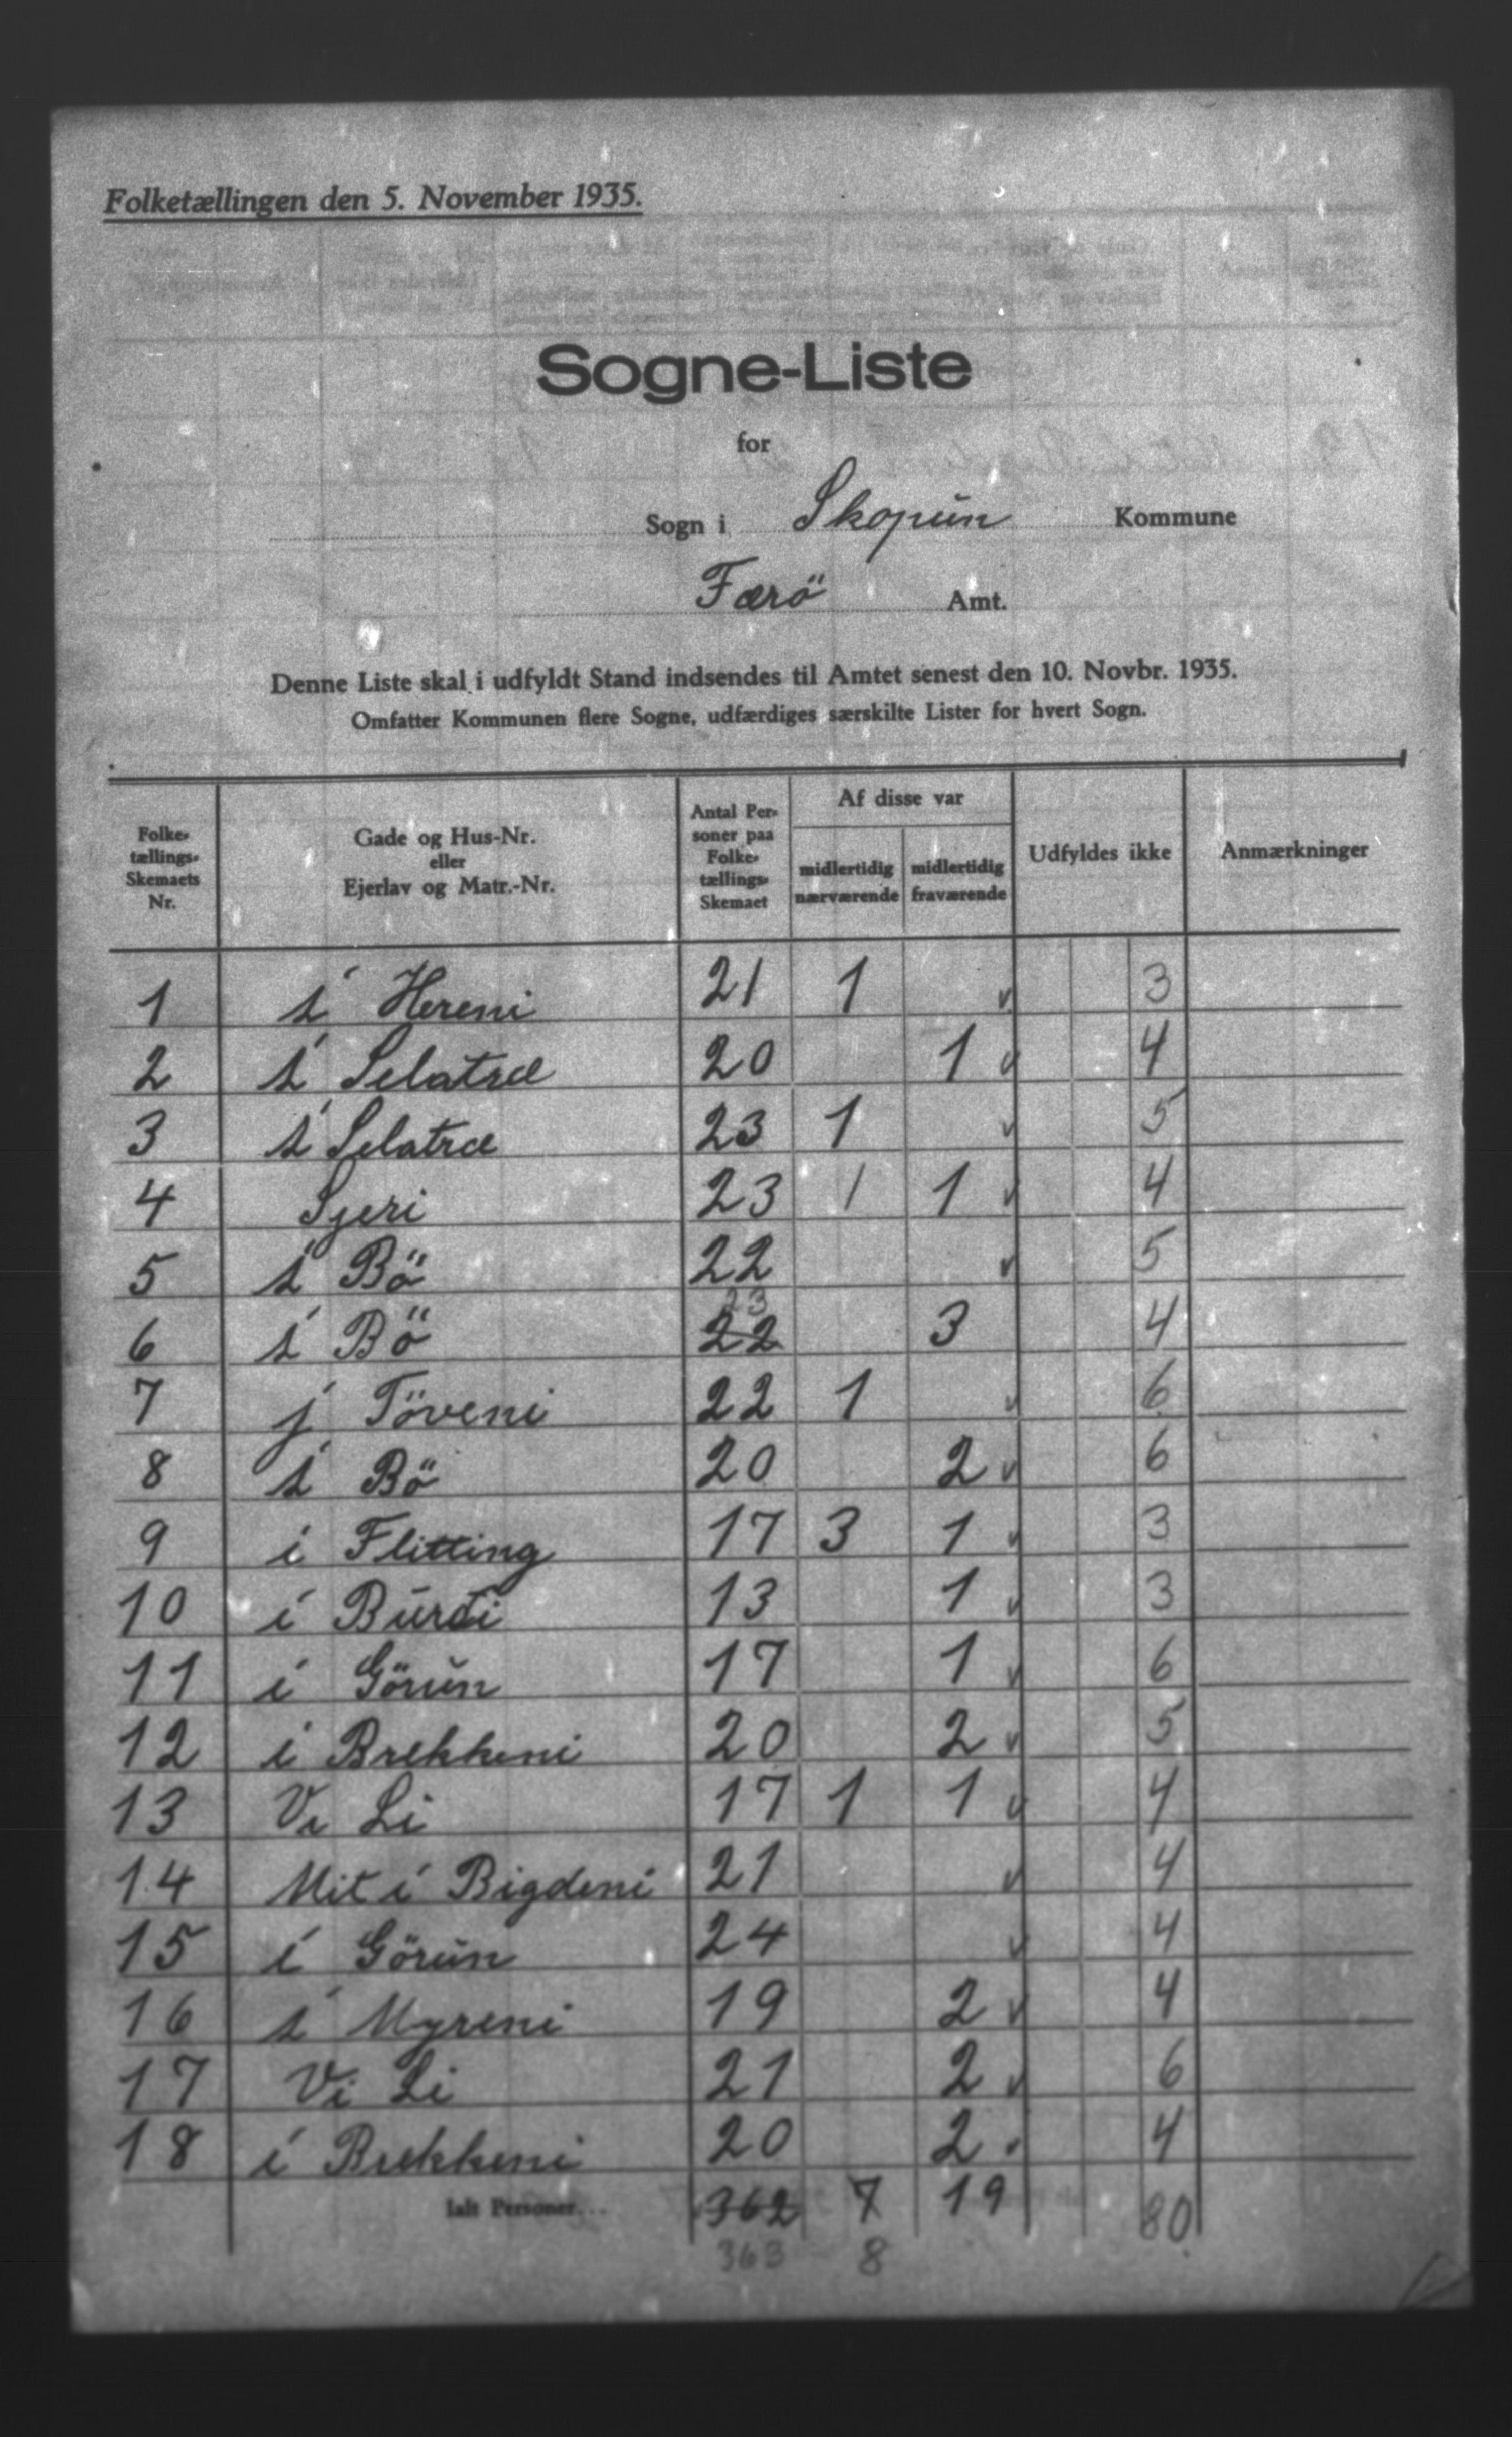 Folketællingen den 5. November 1935.
Sogne-Liste
for
Sogn i Skopun Kommune
Færö Amt.
Denne Liste skal i udfyldt Stand indsendes til Amtet senest den 10. Novbr. 1935.
Omfatter Kommunen flere Sogne, udfærdiges særskilte Lister for hvert Sogn.
Folketællings-Skemaets Nr. Gade og Hus-Nr. eller Ejerlav og Matr.-Nr. Antal Personer paa Folketællings-Skemaet Af disse var midlertidig nærværende midlertidig fraværende Udfyldes ikke Anmærkninger
1 í Hereni 21 1 v 3
2 í Selatræ 20 1 v 4
3 í Selatræ 23 1 v 5
4 Sjeri 23 1 1 v 4
5 í Bö 22 v 5
6 í Bö 22 23 3 4
7 í Töveni 22 1 v 6
8 í Bö 20 2 v 6
9 í Flitting 17 3 1 v 3
10 í Burdi 13 1 v 3
11 í Görun 17 1 v 6
12 í Brekkeni 20 2 v 5
13 Vi Li 17 1 1 v 4
14 Mit í Bigdeni 21 v 4
15 í Görun 24 v 4
16 í Myreni 19 2 v 4
17 Vi Li 21 2 v 6
18 í Brekkeni 20 2 v 4
Ialt Personer... 362 7 19 80
363 8